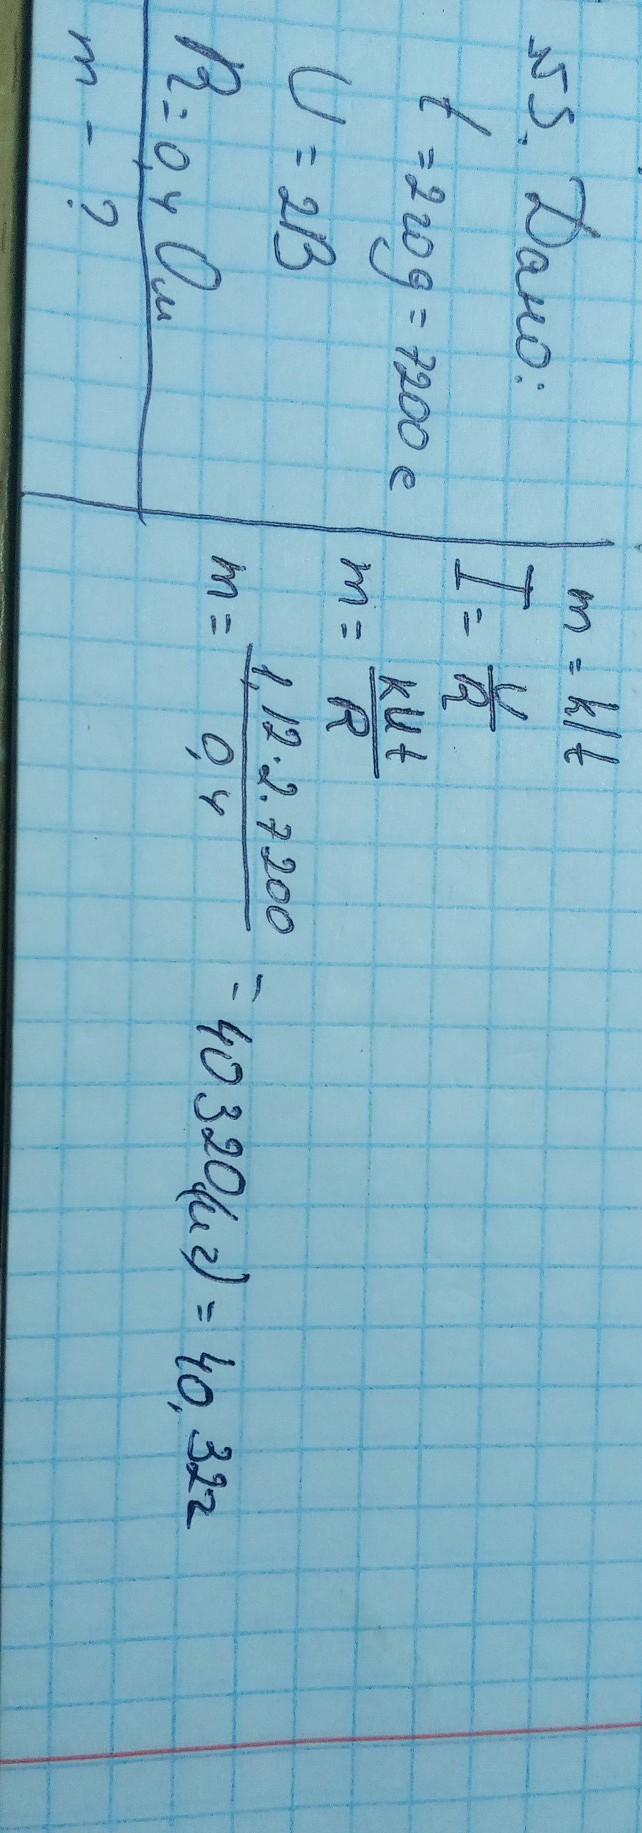 №5. Дано:
t = 2 год = 7200 с
U = 2В
R = 0,4 Ом
m - ?
m = kIt
I = U/R
m = kUt/R
m = 1,12·2·7200/0,4 = 40320(мг) = 40,32г